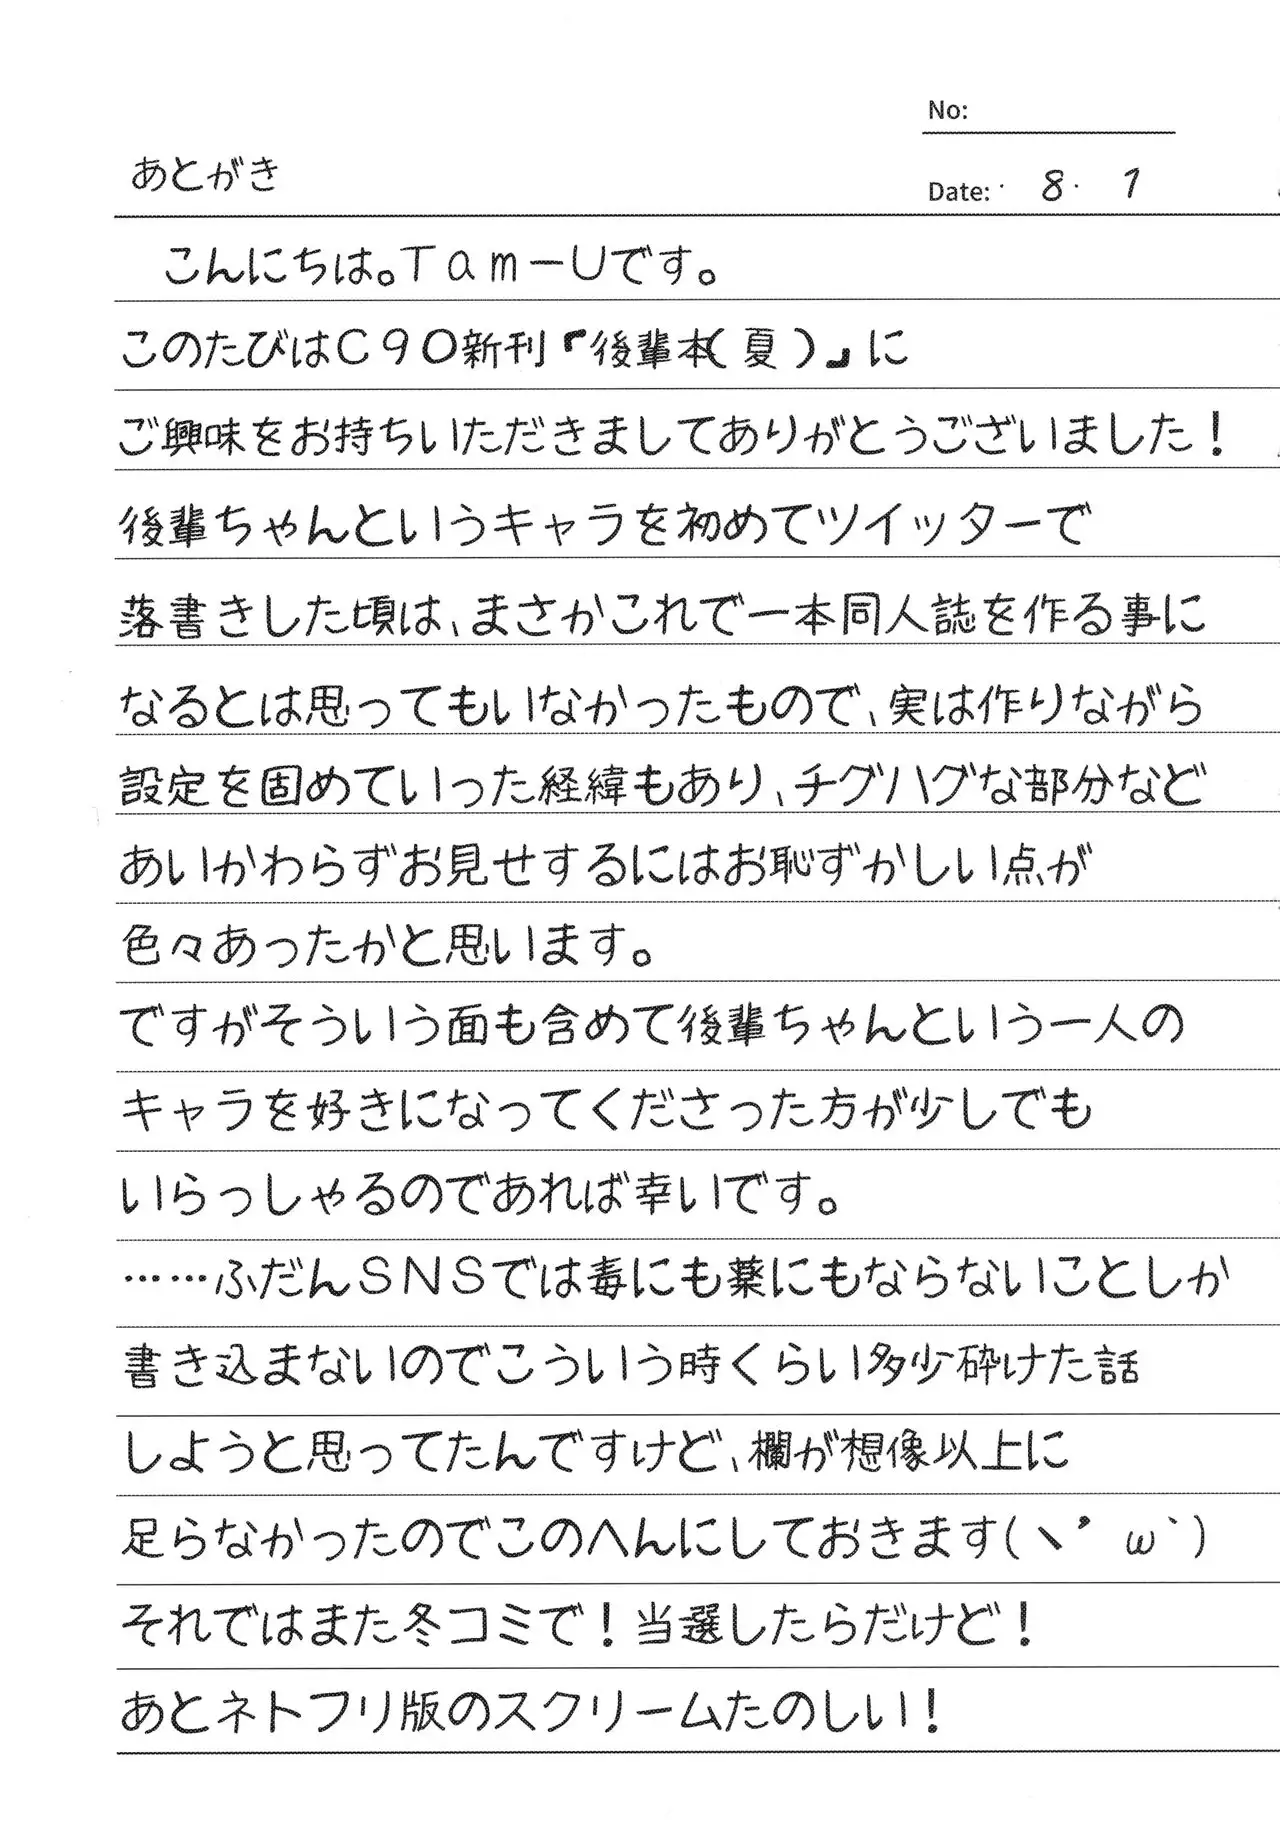 No:
あとがき
Date: ・ 8・ 1
こんにちは。Tam－Uです。
このたびはC90新刊『後輩本(夏)』に
ご興味をお持ちいただきましてありがとうございました！
後輩ちゃんというキャラを初めてツイッターで
落書きした頃は、まさかこれで一本同人誌を作る事に
なるとは思ってもいなかったもので、実は作りながら
設定を固めていった経緯もあり、チグハグな部分など
あいかわらずお見せするにはお恥ずかしい点が
色々あったかと思います。
ですがそういう面も含めて後輩ちゃんという一人の
キャラを好きになってくださった方が少しでも
いらっしゃるのであれば幸いです。
……ふだんSNSでは毒にも薬にもならないことしか
書き込まないのでこういう時くらい多少砕けた話
しようと思ってたんですけど、欄が想像以上に
足らなかったのでこのへんにしておきます(ヽ゜ω｀)
それではまた冬コミで！当選したらだけど！
あとネトフリ版のスクリームたのしい！